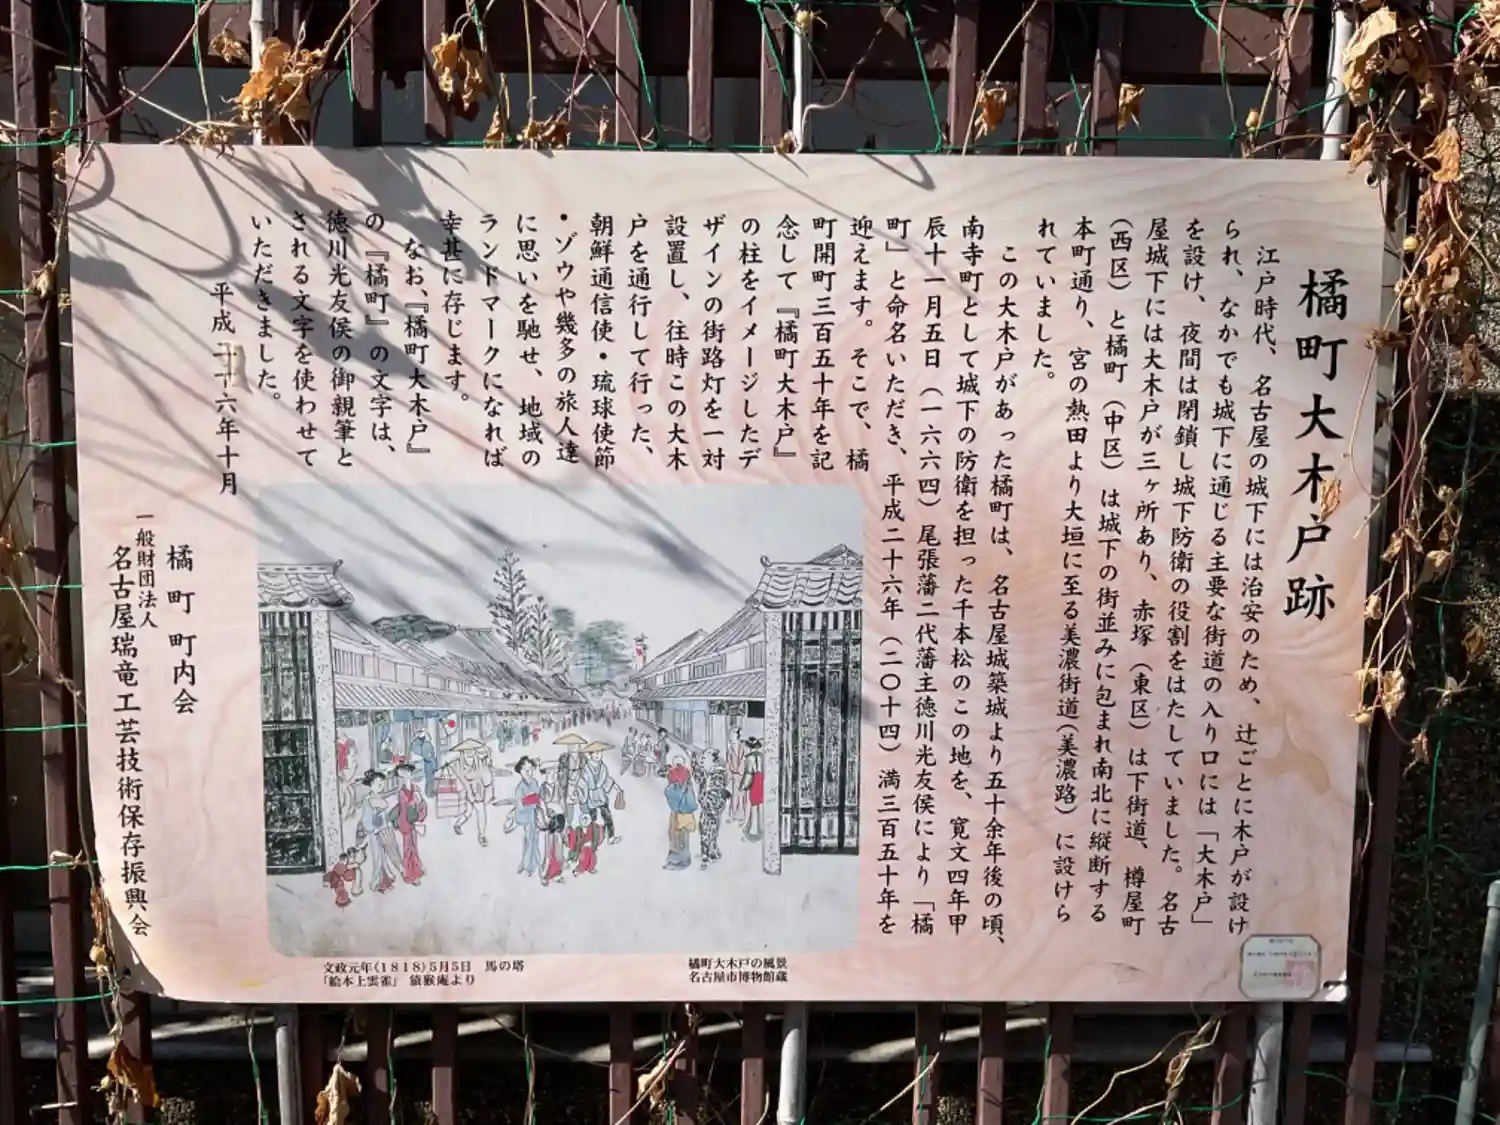 橘町大木戸跡
江戸時代、名古屋の城下には治安のため、辻ごとに木戸が設け
られ、なかでも城下に通じる主要な街道の入り口には「大木戸」
を設け、夜間は閉鎖し城下防衛の役割をはたしていました。名古
屋城下には大木戸が三ヶ所あり、赤塚（東区）は下街道、樽屋町
（西区）と橘町（中区）は城下の街並みに包まれ南北に縦断する
本町通り、宮の熱田より大垣に至る美濃街道（美濃路）に設けら
れていました。
この大木戸があった橘町は、名古屋城築城より五十余年後の頃、
南寺町として城下の防衛を担った千本松のこの地を、寛文四年甲
辰十一月五日（一六六四）尾張藩二代藩主徳川光友侯により「橘
町」と命名いただき、平成二十六年（二〇十四）満三百五十年を
迎えます。そこで、橘
町開町三百五十年を記
念して『橘町大木戸』
の柱をイメージしたデ
ザインの街路灯を一対
設置し、往時この大木
戸を通行して行った、
朝鮮通信使・琉球使節
・ゾウや幾多の旅人達
に思いを馳せ、地域の
ランドマークになれば
幸甚に存じます。
なお、『橘町大木戸』
の『橘町』の文字は、
徳川光友侯の御親筆と
される文字を使わせて
いただきました。
平成二十六年十月
橘町町内会
一般財団法人
名古屋瑞竜工芸技術保存振興会
文政元年(1818)5月5日 馬の塔
「絵本上雲雀」 猿猴庵より
橘町大木戸の風景
名古屋市博物館蔵